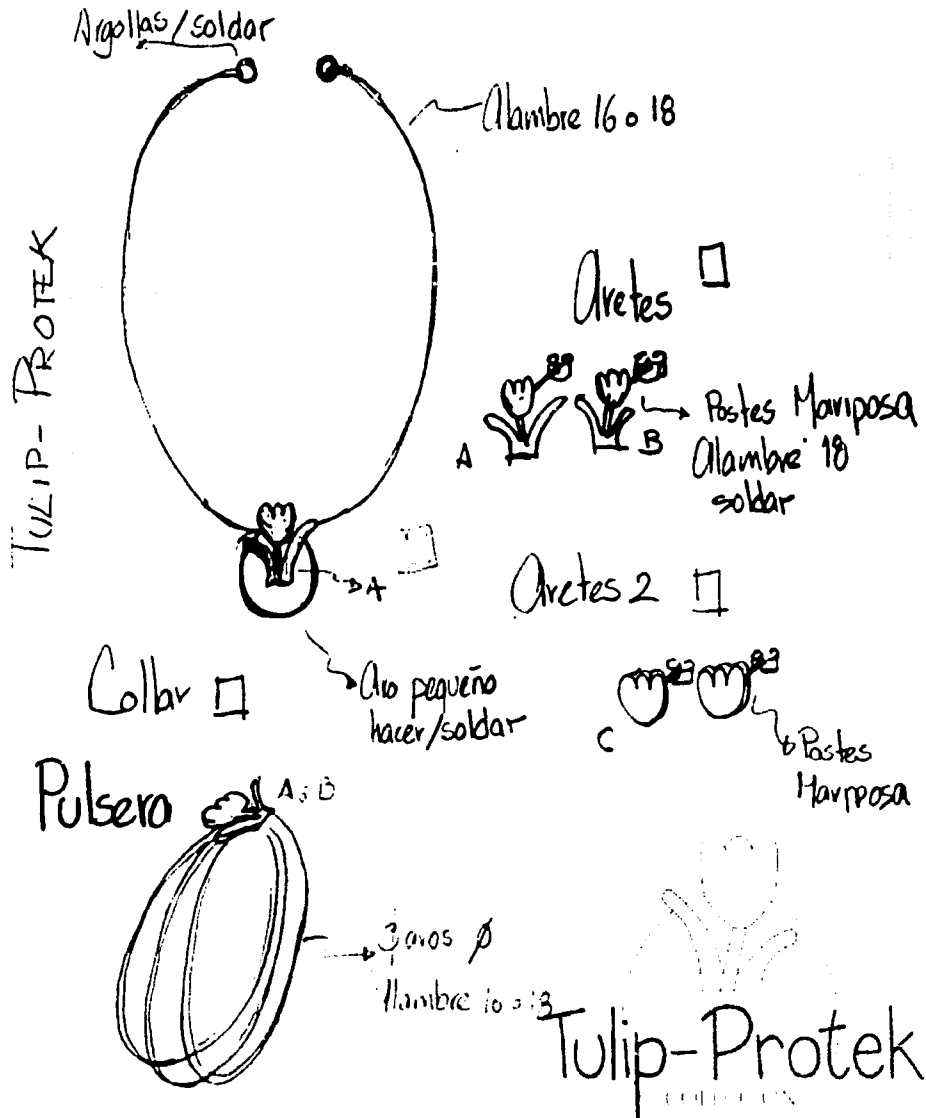 Argollas/soldar
Alambre 16 o 18
TULIP-PROTEK
Aretes
A
B
Postes Mariposa
Alambre 18
soldar
A
Aretes 2
Collar
Aro pequeño
hacer/soldar
C
Postes
Mariposa
Pulsera
A o B
3 aros Ø
Alambre
Tulip-Protek